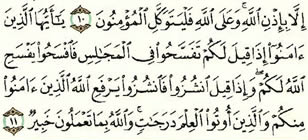 إِلَّا بِإِذْنِ ٱللَّهِ ۚ وَعَلَى ٱللَّهِ فَلْيَتَوَكَّلِ ٱلْمُؤْمِنُونَ ١٠ يَـٰٓأَيُّهَا ٱلَّذِينَ
ءَامَنُوٓا۟ إِذَا قِيلَ لَكُمْ تَفَسَّحُوا۟ فِى ٱلْمَجَـٰلِسِ فَٱفْسَحُوا۟ يَفْسَحِ
ٱللَّهُ لَكُمْ ۖ وَإِذَا قِيلَ ٱنشُزُوا۟ فَٱنشُزُوا۟ يَرْفَعِ ٱللَّهُ ٱلَّذِينَ ءَامَنُوا۟
مِنكُمْ وَٱلَّذِينَ أُوتُوا۟ ٱلْعِلْمَ دَرَجَـٰتٍ ۚ وَٱللَّهُ بِمَا تَعْمَلُونَ خَبِيرٌ ١١